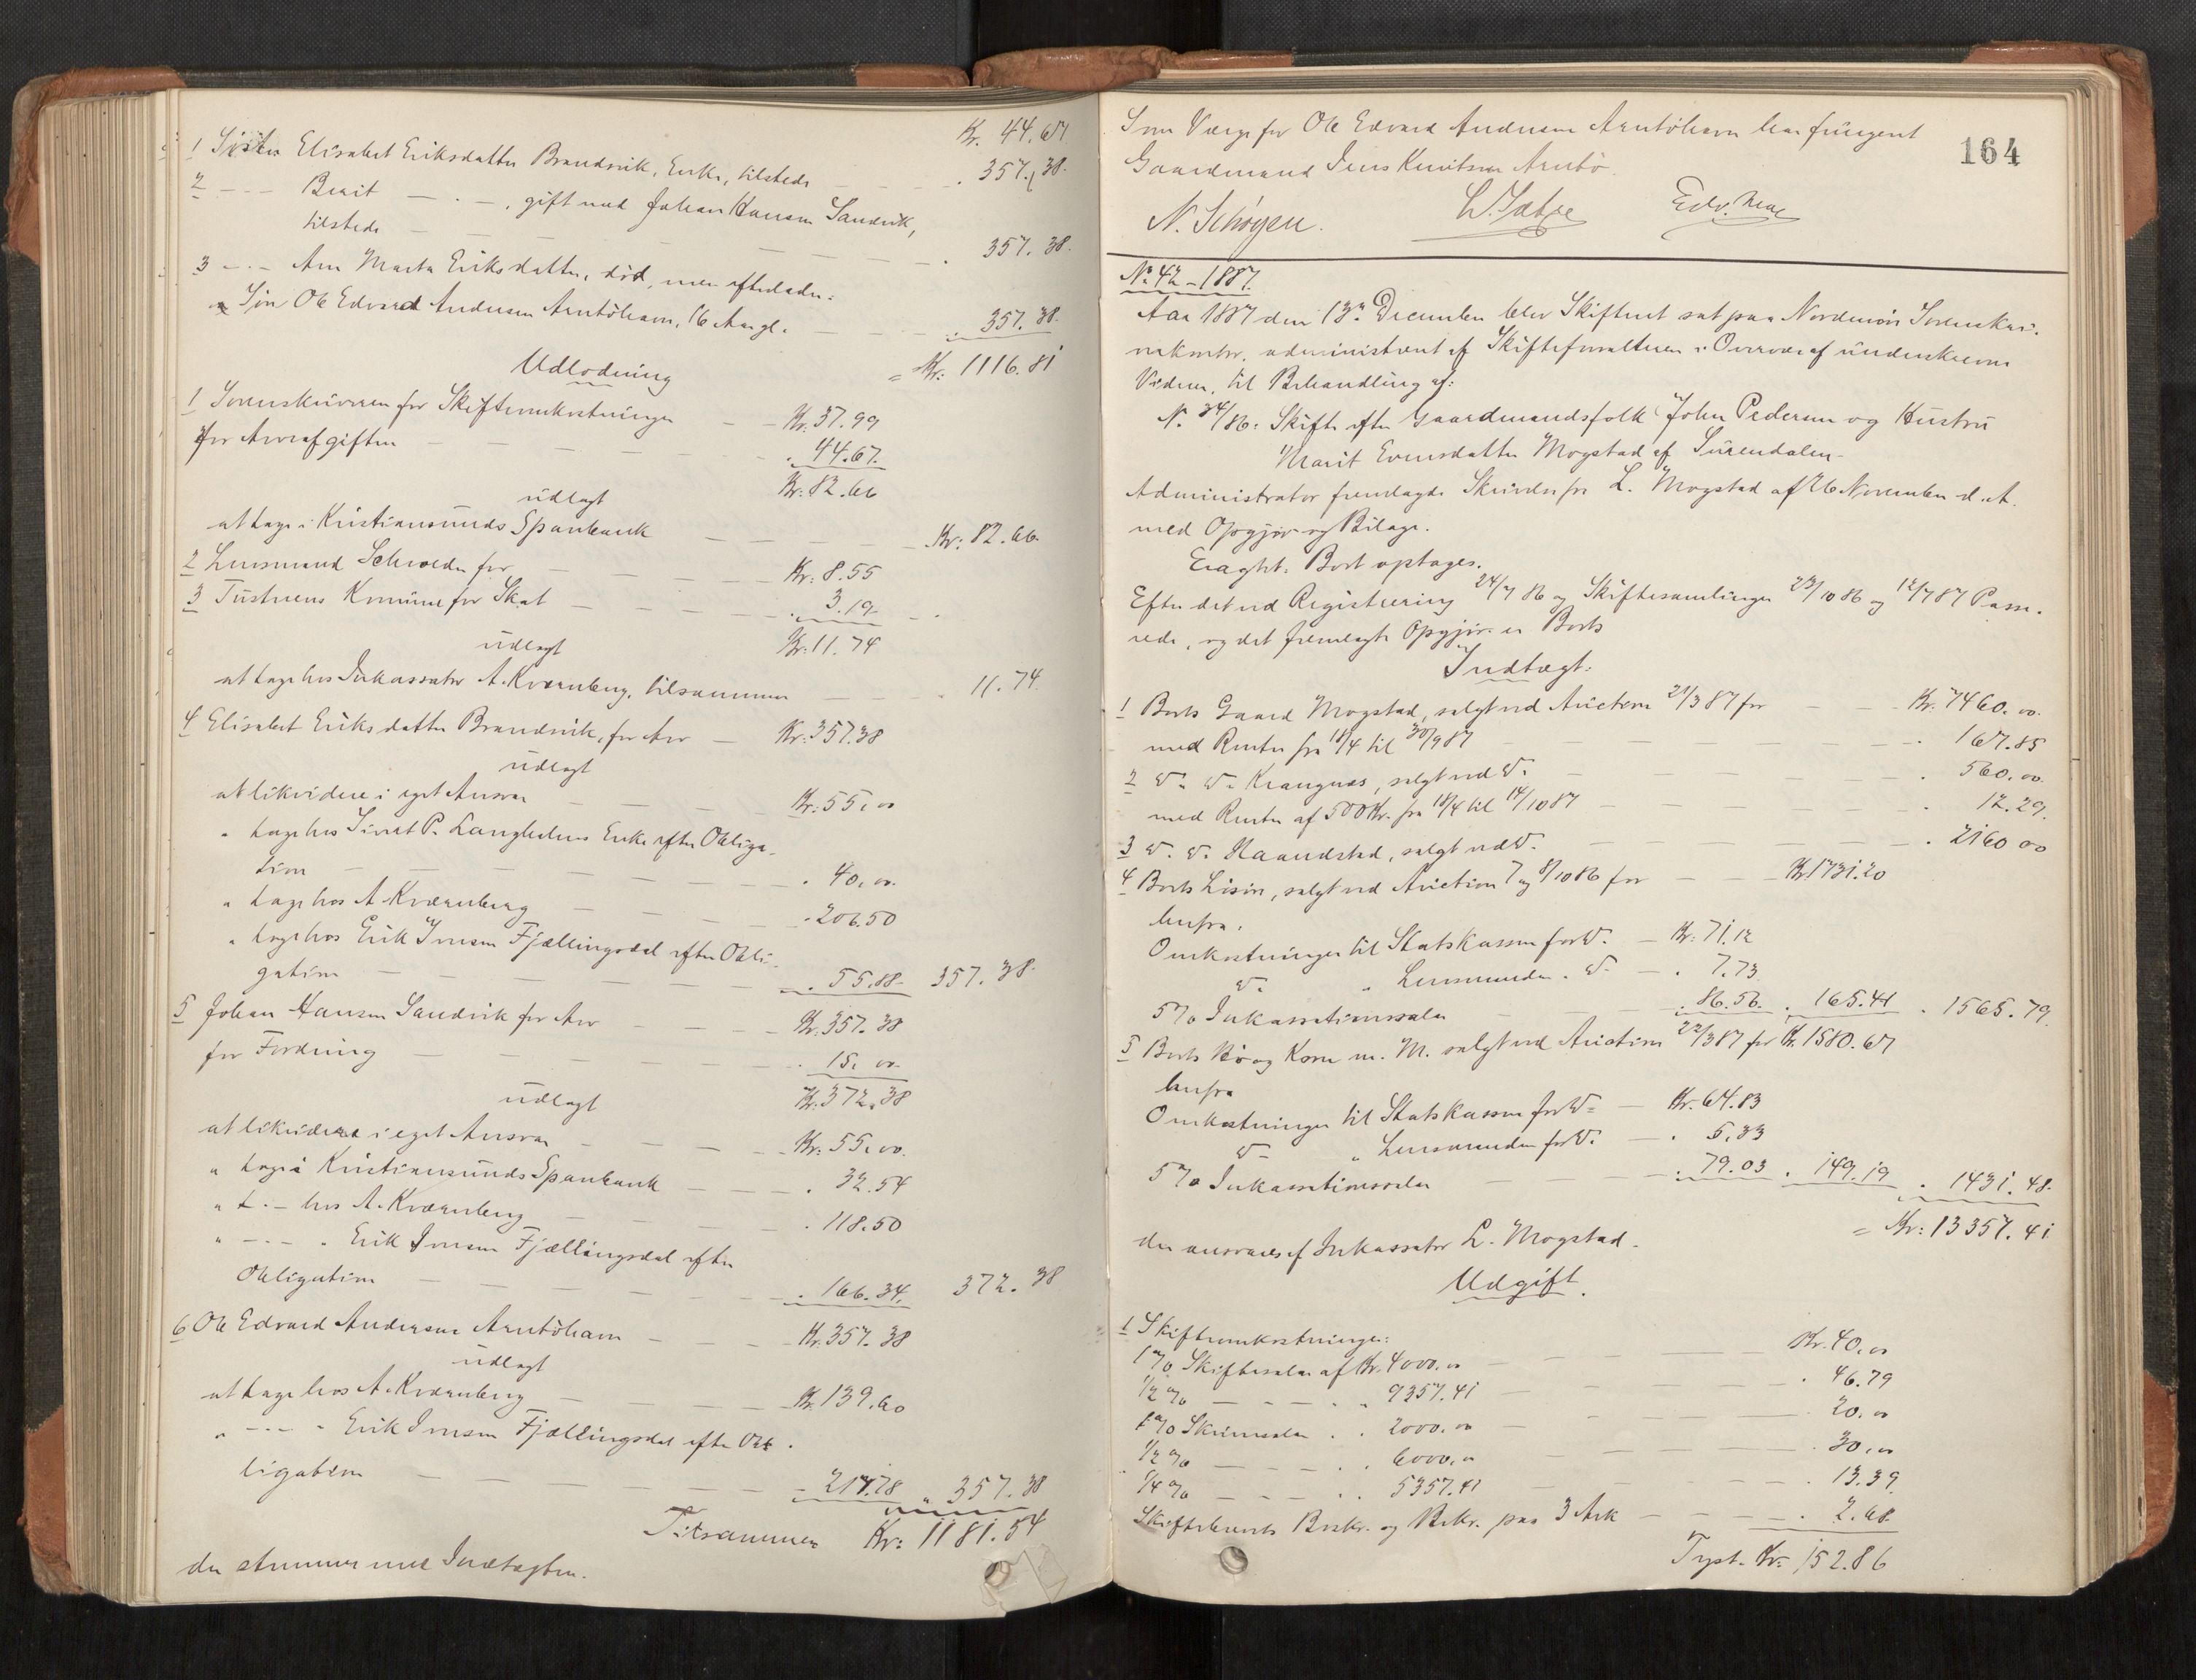 Kr. 44.67
1 Søster Elisabet Eriksdatter Brandsvik, Enke, tilstede — — . 357.38.
2 — - - Berit — . — , gift med Johan Hansen Sandvik,
tilstede — — — — — . 357. 38.
3 - . - Ane Marta Eriksdatter, død, men efterlader:
a Søn Ole Edvard Andersen Arntöhavn, 16 Aar gl. — — . 357. 38.
= Kr: 1116.81
Udlodning
1 Sorenskriveren for Skifteomkostninger — — Kr. 37.99
for Arveafgiften — — — — . 44.67.
Kr: 82.66
udlagt
at tage i Kristiansunds Sparebank — — — — Kr: 82.66.
2 Lensmand Schrøder for — — — — Kr. 8.55
3 Tustneens Kommune for Skat — — — . 3.19 - .
Kr. 11.74
udlagt
at tage hos Inkassator A. Kværnberg, tilsammen — — . 11.74.
4 Elisabet Eriksdatter Brandsvik, for Arv — Kr. 357.38
udlagt
at likvidere i eget Ansvar — — — Kr: 55,00
" tage hos Sivert P. Langlielms Enke efter Obliga-
tion — — — — — . 40,00.
" tage hos A. Kværnberg — — — . 206.50
" tage hos Erik Iversen Fjællingsdal efter Obli-
gation — — — — — . 55.88 357.38.
5 Johan Hansen Sandvik for Arv — — — Kr. 357.38
for Fordring — — — — . 15,00.
Kr. 372.38
udlagt
at likvidere i eget Ansvar — — — Kr: 55,00.
" tage i Kristiansunds Sparebank — — . 32.54
" t. — hos A. Kværnberg — — — . 118.50
" - . - " Erik Iversen Fjællingsdal efter
Obligation — — — — . 166.34. 372.38
6 Ole Edvard Andersen Arntöhavn — — — Kr. 357.38
udlagt
at tage hos A. Kværnberg — — — Kr. 139.60
" - . - " Erik Iversen Fjællingsdal efter Ob-
ligation — — — — — . 217.78 " 357.38
Tilsammen Kr: 1181.54
der stemmer med Indtægten.
164
Som Værge for Ole Edvard Andersen Arntöhavn har fungeret
Gaardmand Jens Knutsen Arntö.
N. Schøyen.
No. 42 - 1887.
Aar 1887 den 13de December blev Skifteret sat paa Nordmörs Sorenskri-
verkontor, administreret af Skifteforvalteren i Overvær af underskrevne
Vidner, til Behandling af:
N. 34/86: Skifte efter Gaardmandsfolk John Pedersen og Hustru
Marit Evensdatter Mogstad af Surendalen.
Administrator fremlagde Skrivelse fra L. Mogstad af 26 November d. A.
med Opgjør og Bilage.
Eragtet: Boet optages.
Efter det ved Registrering 24/7 86 og Skiftesamlinger 23/10 86 og 12/7 87 Passe-
rede, og det fremlagte Opgjør er Boets
Indtægt:
1 Boets Gaard Mogstad, solgt ved Auction 21/3 87 for — — Kr. 7460.00.
med Renter fra 18/4 til 30/9 87 — — — — . 167.85
2 Do. Do. Krangnæs, solgt ved Do. — — — — . 560.00.
med Renter af 500 Kr. fra 18/4 til 14/10 87 — — — . 12.29.
3 Do. Do. Haandstad, solgt ved Do. — — — . 2160 00
4 Boets Løsøre, solgt ved Auction 7 og 8/10 86 for — — Kr. 1731.20
herfra:
Omkostninger til Statskassen for Do. — Kr: 71.12
Do. " Lensmanden . Do. — . 7.73
5% Inkassationssalær — . 86.56. . 165.41 . 1565.79.
5 Boets Kø og Korn m. M. solgt ved Auction 22/3 87 for Kr. 1580.67
herfra
Omkostninger til Statskassen for Do. — Kr. 64.83
Do. " Lensmanden for Do. — . 5.33
5% Inkassationssalær — — . 79.03 . 149.19 . 1431.48.
= Kr: 13357.41
der ansvares af Inkassator L. Mogstad.
Udgift.
1 Skifteomkostninger:
1% Skiftesalær af Kr. 4000.00 — — — Kr. 40,00
1/2% — - - . " 9357.41 — — — . 46.79
1% Skriversalær . . 2000.00 — — — . 20.00
1/2% — - - . . 6000.00 — — — . 30.00
1/4% — - - . . 5357.41 — — — . 13.39.
Skiftebrevets Beskr. og Bekr. paa 3 Ark — — . 2.68
Tyst. Kr: 152.86